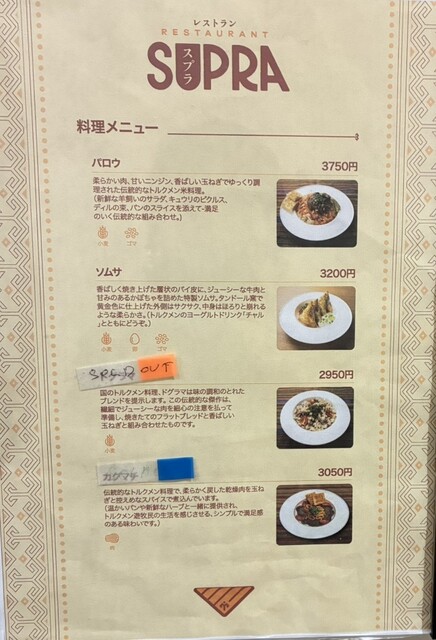 レストラン
RESTAURANT
SUPRA
スプラ
料理メニュー
パロウ 3750円
柔らかい肉、甘いニンジン、香ばしい玉ねぎでゆっくり調
理された伝統的なトルクメン米料理。
（新鮮な羊飼いのサラダ、キュウリのピクルス、
ディルの束、パンのスライスを添えて-満足
のいく伝統的な組み合わせ。）
小麦 ゴマ
ソムサ 3200円
香ばしく焼き上げた層状のパイ皮に、ジューシーな牛肉と
甘みのあるかぼちゃを詰めた特製ソムサ。タンドール窯で
黄金色に仕上げた外側はサクサク、中身はほろりと崩れる
ような柔らかさ。（トルクメンのヨーグルトドリンク「チャル」
とともにどうぞ。）
小麦 卵 ゴマ
OUT
2950円
国のトルクメン料理、ドグラマは味の調和のとれた
ブレンドを提示します。この伝統的な傑作は、
繊細でジューシーな肉を細心の注意を払って
準備し、焼きたてのフラットブレッドと香ばしい
玉ねぎと組み合わせたものです。
小麦
3050円
伝統的なトルクメン料理で、柔らかく戻した乾燥肉を玉ね
ぎと控えめなスパイスで煮込んでいます。
（温かいパンや新鮮なハーブと一緒に提供され、
トルクメン遊牧民の生活を感じさせる、シンプルで満足感
のある味わいです。）